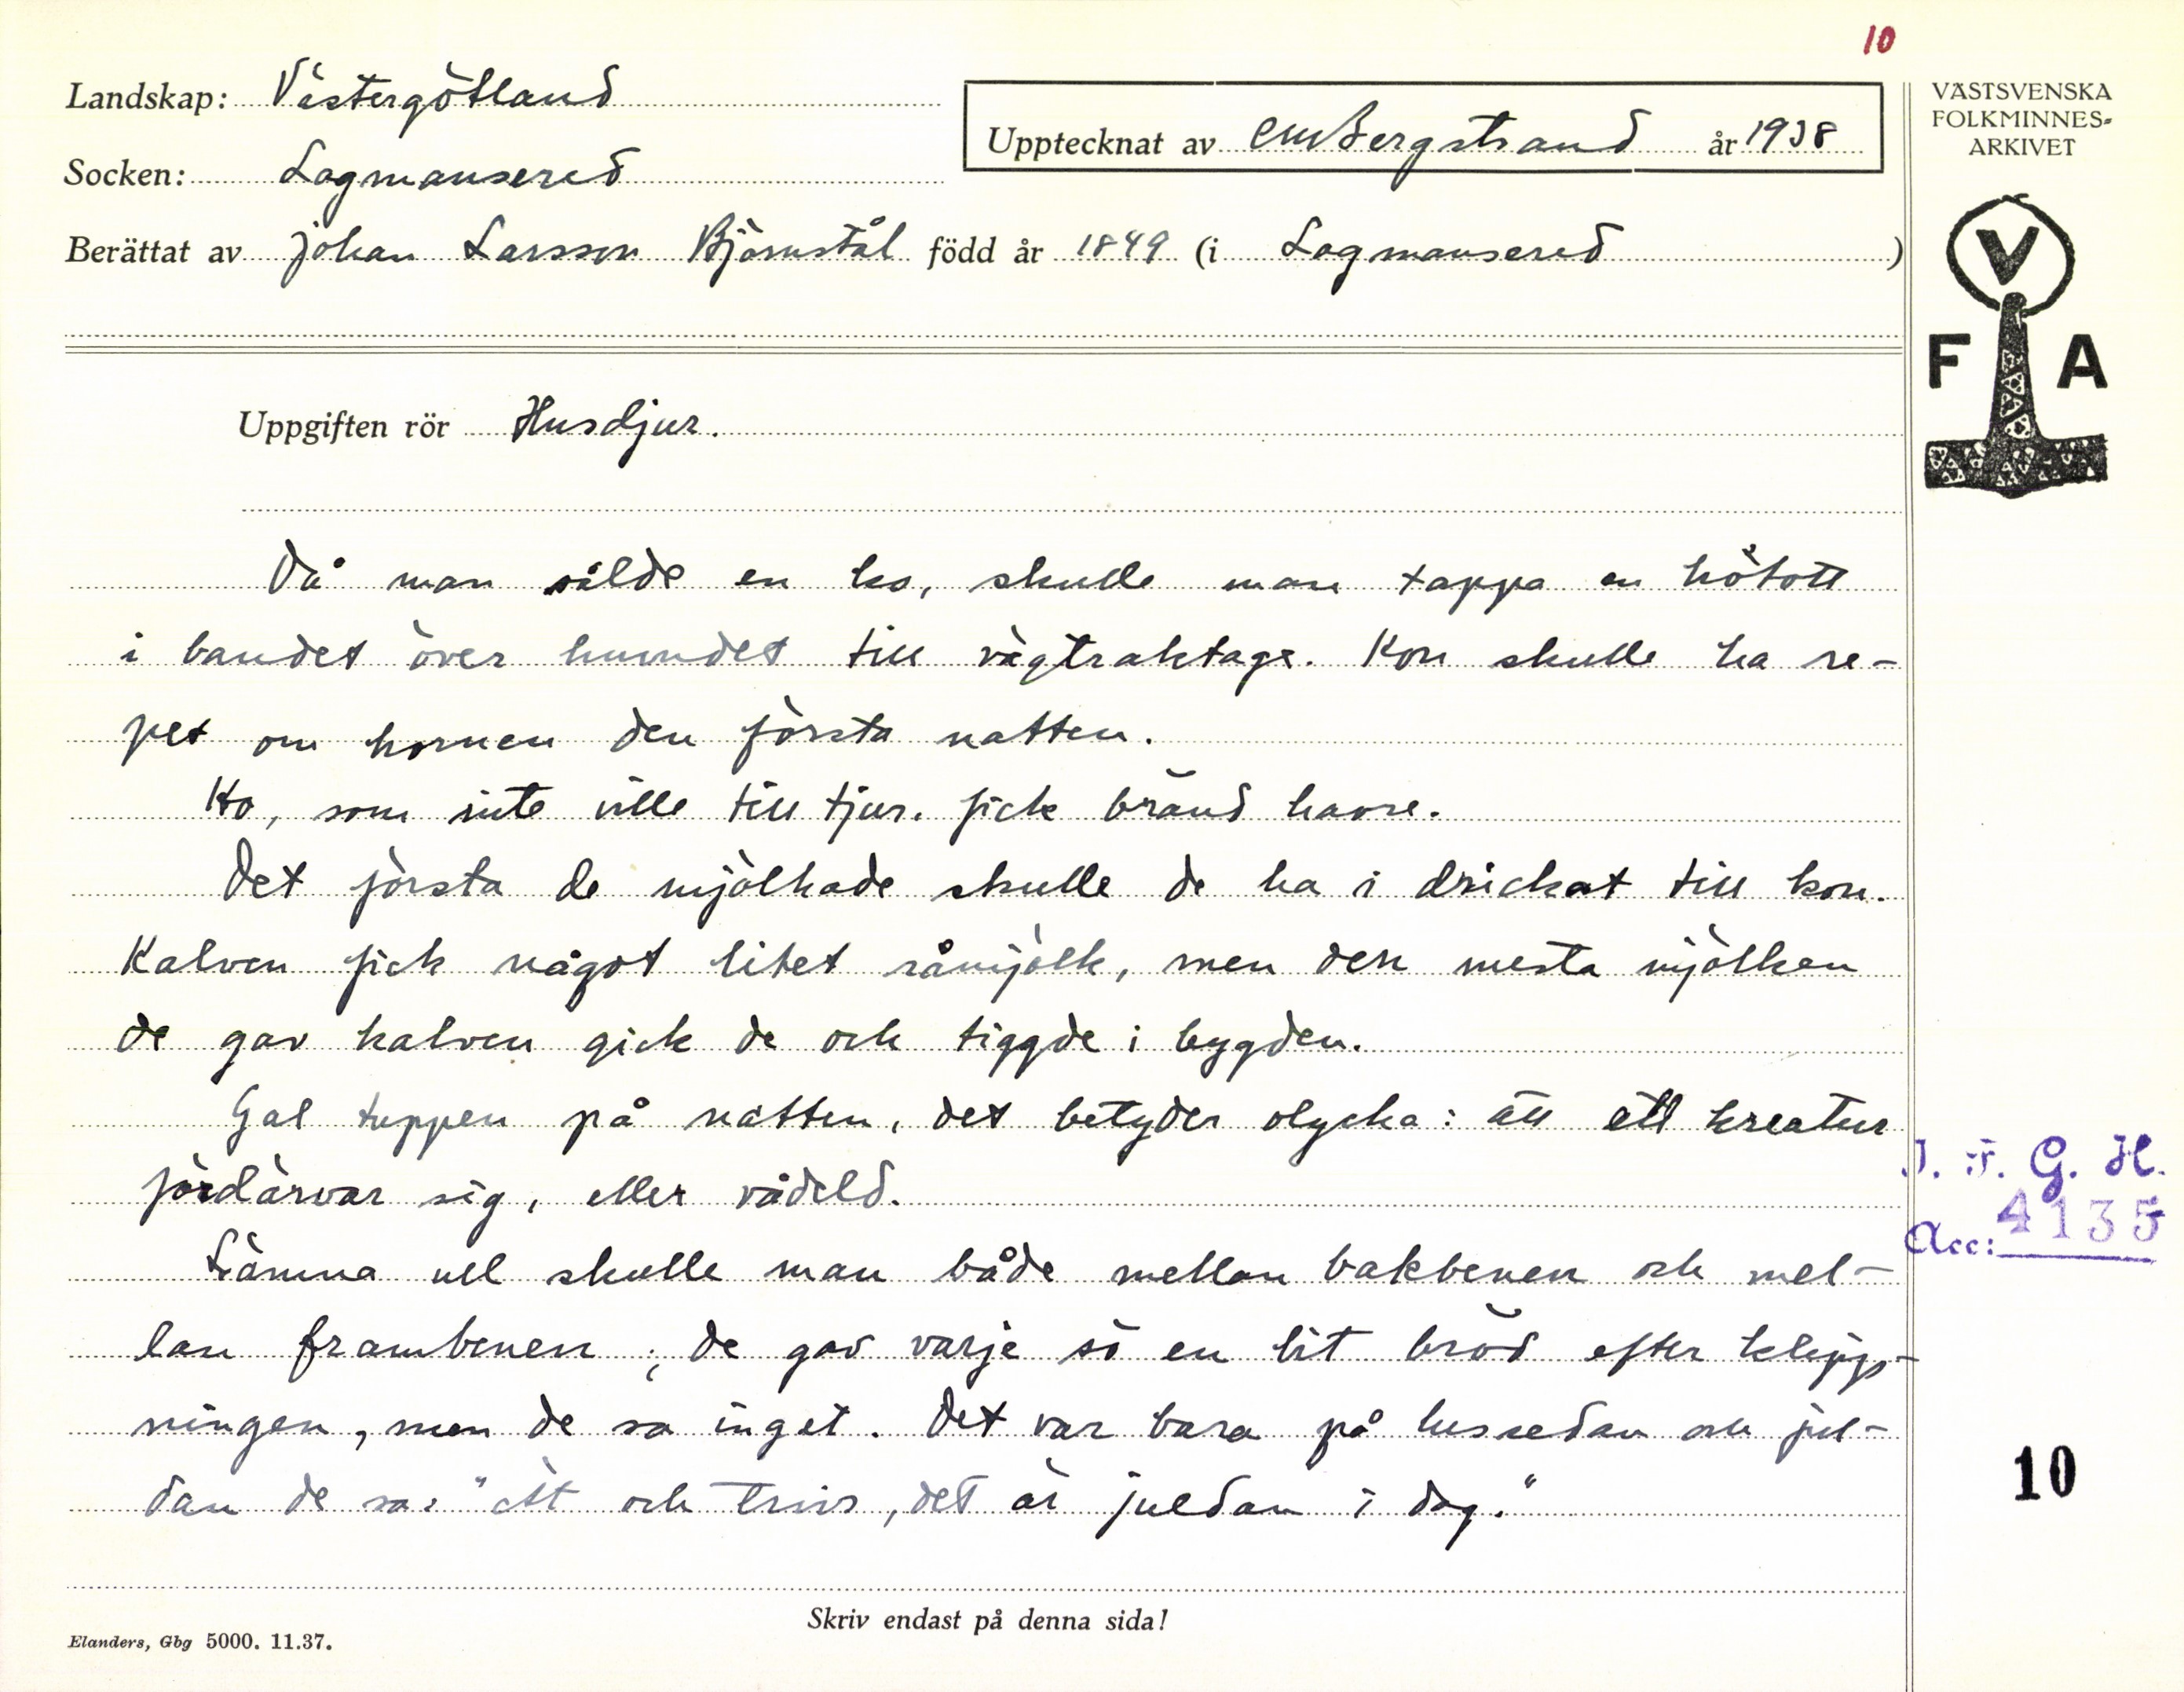 10
Landskap: Västergötland
Upptecknat av CMBergstrand år 1938
VÄSTSVENSKA
FOLKMINNES-
ARKIVET
Socken: Lagmansered
Berättat av Johan Larsson Björnstål född år 1849 (i Lagmansered)
V
F A
Uppgiften rör Husdjur.
Då man sålde en ko, skulle man tappa en hötott
i bandet över huvudet till vägtraktage. Kon skulle ha re-
pet om hornen den första natten.
Ko, som inte ville till tjur. fick bränd havre.
Det första de mjölkade skulle de ha i drickat till kon.
Kalven fick något litet råmjölk, men den mesta mjölken
de gav kalven gick de och tiggde i bygden.
Gal tuppen på natten, det betyder olycka: att ett kreatur
fördärvar sig, eller vådeld.
J. F. G. H.
Acc: 4135
Lämna ull skulle man både mellan bakbenen och mel-
lan frambenen; de gav varje sö en bit bröd efter klipp-
ningen, men de sa inget. Det var bara på lussedan och jul-
dan de sa: "ät och trivs, det är juldan i dag."
10
Skriv endast på denna sida!
Elanders, Gbg 5000. 11.37.